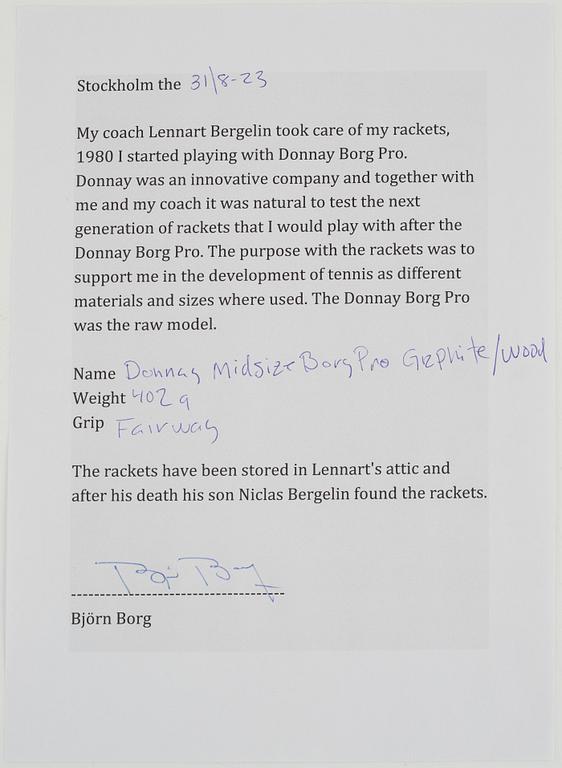 Stockholm the 31/8-23
My coach Lennart Bergelin took care of my rackets,
1980 I started playing with Donnay Borg Pro.
Donnay was an innovative company and together with
me and my coach it was natural to test the next
generation of rackets that I would play with after the
Donnay Borg Pro. The purpose with the rackets was to
support me in the development of tennis as different
materials and sizes where used. The Donnay Borg Pro
was the raw model.
Name Donnay Midsize Borg Pro Graphite/wood
Weight 402 g
Grip Fairway
The rackets have been stored in Lennart's attic and
after his death his son Niclas Bergelin found the rackets.
Björn Borg
Björn Borg